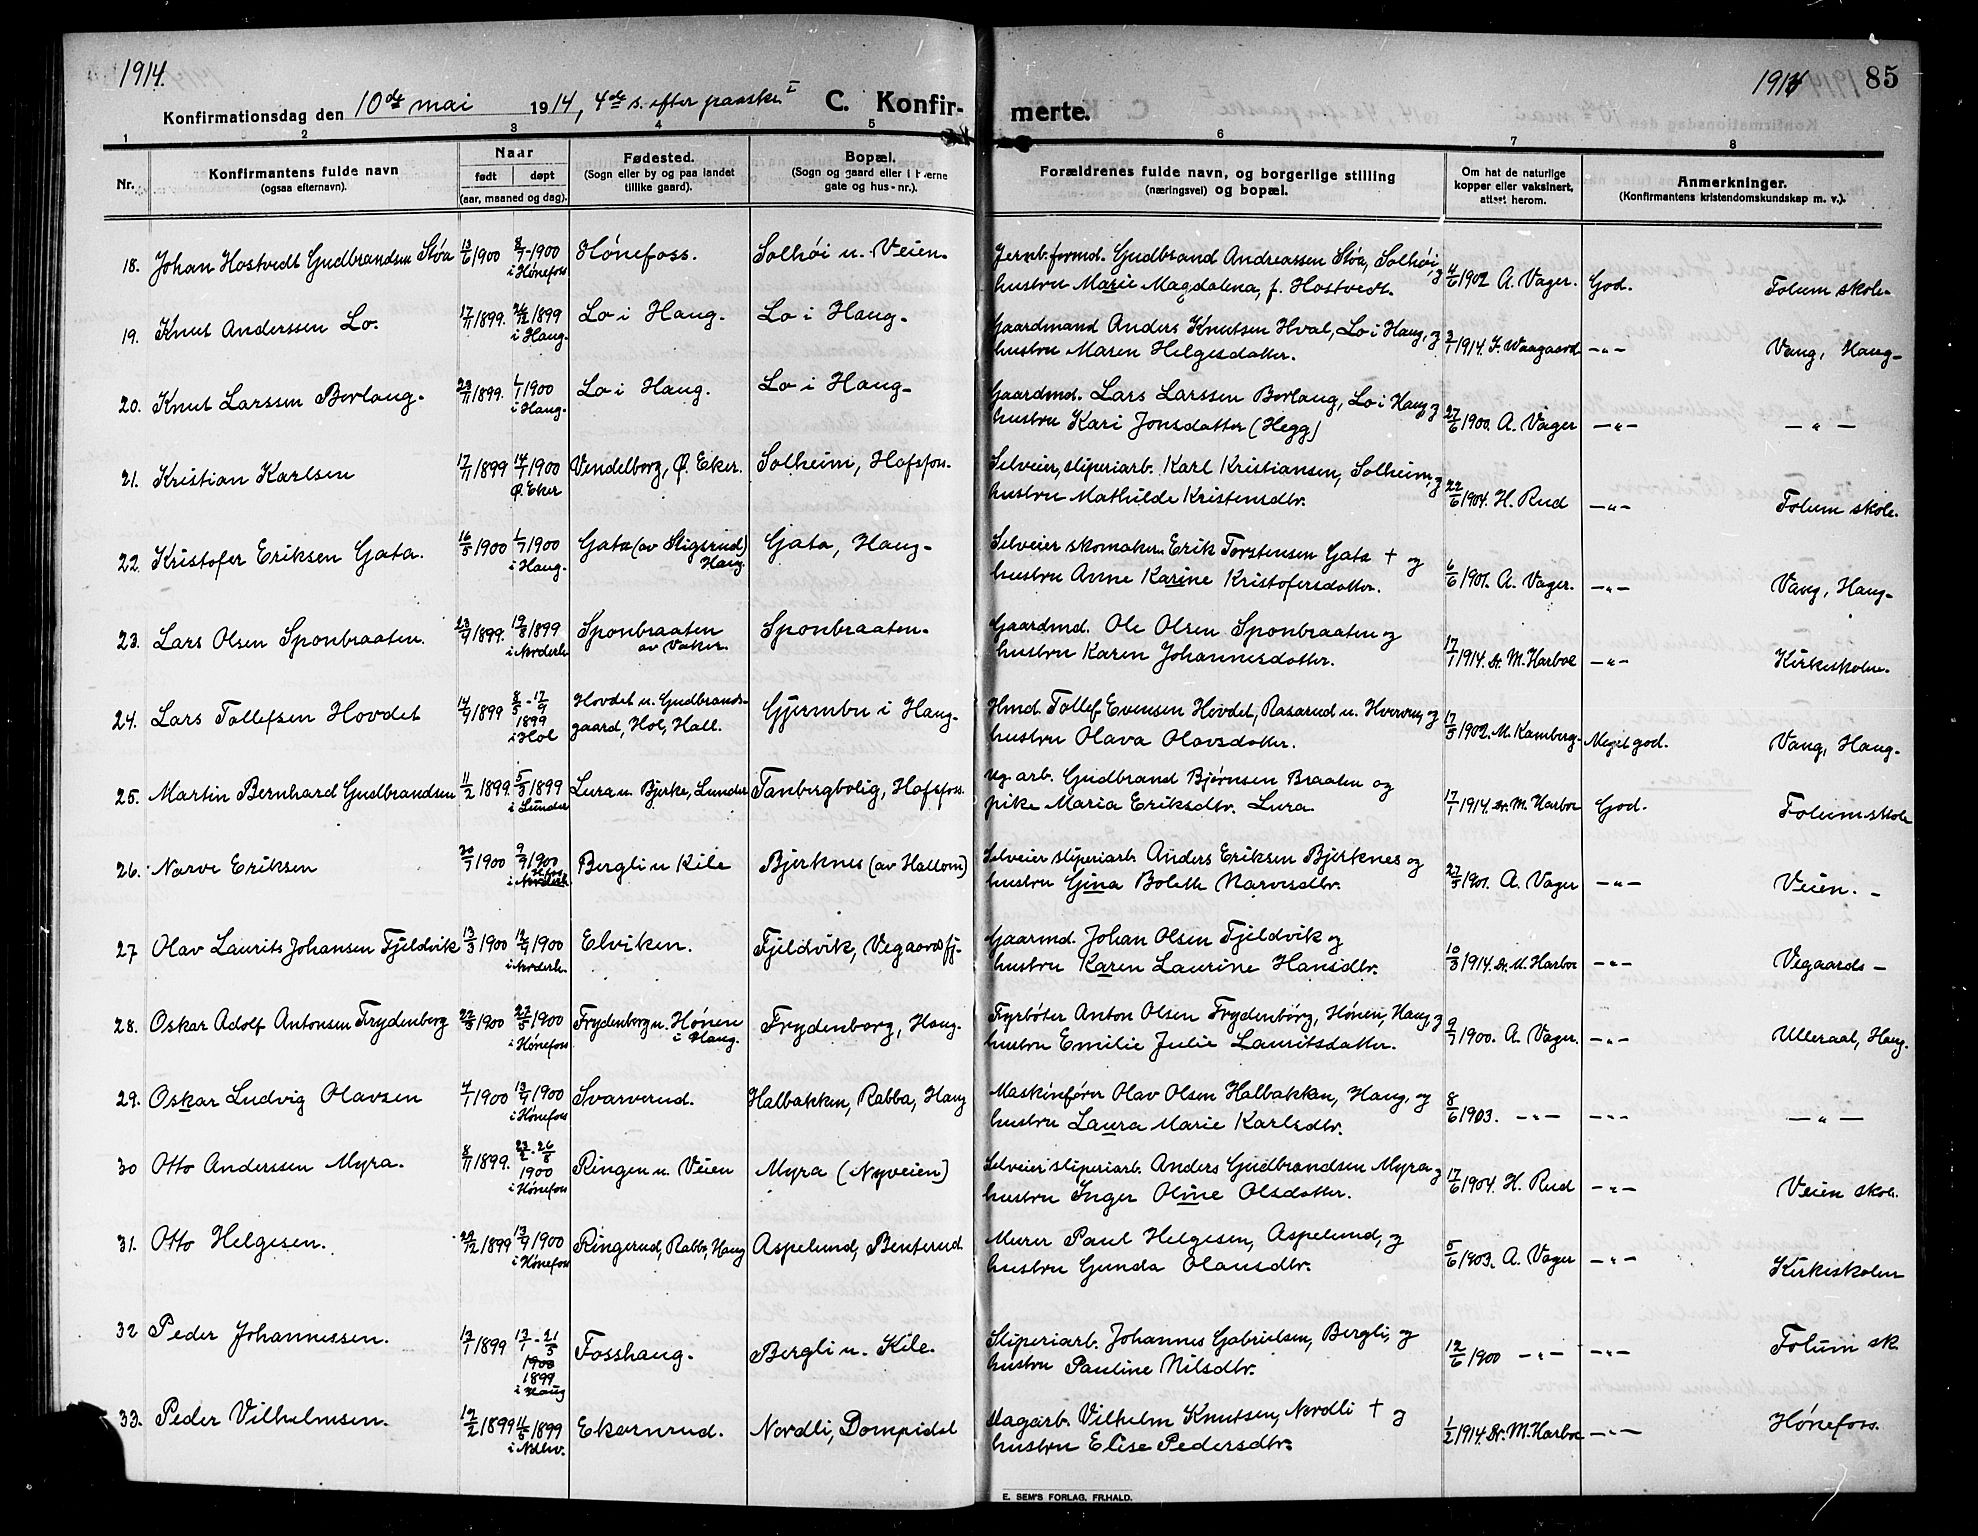 1914.
1914 85
Konfirmationsdag den 10de mai 1914, 4de s. efter paaske I C. Konfirmerte.
1 2 3 4 5 6 7 8
Nr. Konfirmantens fulde navn (ogsaa efternavn). Naar født døpt (aar, maaned og dag). Fødested. (Sogn eller by og paa landet tillike gaard). Bopæl. (Sogn og gaard eller i byerne gate og hus-nr.). Forældrenes fulde navn, og borgerlige stilling (næringsvei) og bopæl. Om hat de naturlige kopper eller vaksinert, attest herom. Anmerkninger. (Konfirmantens kristendomskundskap m. v.).
18. Johan Hostvedt Gudbrandsen Støa 13/6 1900 8/7-1900 i Hønefoss Hønefoss. Solhøi u. Veien. Jernb.formd. Gudbrand Andreassen Støa, Solhøi, og hustru Marie Magdalena, f. Hostvedt. 4/6 1902 A. Vager. God. Folum skole.
19. Knut Anderssen Lo. 17/11 1899. 26/12 1899 i Haug. Lo i Haug. Lo i Haug. Gaardmand Anders Knutsen Hval, Lo i Haug, og hustru Maren Helgesdatter. 3/1 1914. F. Waagaard -"- Vang, Haug-
20. Knut Larssen Borlaug. 29/11 1899. 1/1 1900 i Haug. Lo i Haug. Lo i Haug- Gaardmd. Lars Larssen Borlaug, Lo i Haug, og hustru Kari Jonsdatter (Hegg) 27/6 1900. A. Vager -"- -"-
21. Kristian Karlsen 17/11 1899 14/1 1900 Ø. Eker Vendelborg, Ø. Eker. Solheim, Hofsfoss. Selveier, sliperiarb. Karl Kristiansen, Solheim, og hustru Mathilde Kristensdtr. 22/6 1904. H. Rud -"- Folum skole.
22. Kristofer Eriksen Gata. 16/5 1900 1/7 1900 i Haug. Gata (av Stigsrud) Haug Gata, Haug- Selveier skomaker Erik Torstensen Gata † og hustru Anne Karine Kristofersdatter. 6/6 1901. A. Vager. -"- Vang, Haug-
23. Lars Olsen Sponbraaten. 1899. 1899 i Norderh. Sponbraaten av Vaker. Sponbraaten. Gaardmd. Ole Olsen Sponbraaten og hustru Karen Johannesdatter. 17/1 1914. Dr. M. Harboe -"- Kirkeskolen.
24. Lars Tollefsen Hovdet 14/4 1899 8/5 - 17/9 1899 i Hol Hovdet u. Gudbrandsgaard, Hol, Hall. Gjermbu i Haug- Hmd. Tollef Evensen Hovdet, Rasarud u. Hverven, og hustru Olava Olavsdatter. 17/5 1902. M. Kamberg. Meget god. Vang, Haug-
25. Martin Bernhard Gudbrandsen 11/2 1899. 5/3 1899 i Lunder Lura u. Bjerke, Lunder Tanbergbolig, Hofsfoss. Ug. arb. Gudbrand Bjørnsen Braaten og pike Maria Eriksdtr. Lura. 17/1 1914. Dr. M. Harboe God. Folum skole
26. Narve Eriksen 20/7 1900 9/9 1900 i Norderh. Bergli u Kile Bjerknes (av Hallom) Selveier sliperiarb. Anders Eriksen Bjerknes og hustru Gina Boleth Narvesdtr. 27/5 1901. A. Vager -"- Veien. -
27 Olav Laurits Johansen Fjeldvik 13/3 1900 1900 i Norderh. Elviken. Fjeldvik, Vegaardsfj. Gaarmd. Johan Olsen Fjeldvik og hustru Karen Laurine Hansdtr. 10/3 1914. Dr. M. Harboe -"- Vegaards -
28. Oskar Adolf Antonsen Frydenberg 22/3 1900 27/5 1900 i Hønefoss Frydenberg u. Hønen i Haug. Frydenberg, Haug. Fyrbøter Anton Olsen Frydenberg, Hønen, Haug, og hustru Emilie Julie Lauritsdatter. 9/7 1900. A. Vager. -"- Ulleraal, Haug.
29. Oskar Ludvig Olavsen 4/1 1900 13/4 1900 i Hønefoss Svarverud. Halbakken, Rabba, Haug Maskinfører Olav Olsen Halbakken, Haug, og hustru Laura Marie Karlsdtr. 8/6 1903. -"- -"- -"-
30 Otto Anderssen Myra. 8/11 1899. 23/2 - 26/8 1900 i Hønefoss Ringen u. Veien Myra (Nyveien) Selveier sliperiarb. Anders Gudbrandsen Myra og hustru Inger Oline Olsdatter. 17/6 1904. H. Rud -"- Veien skole.
31. Otto Helgesen. 29/12 1899 13/4 1900 i Hønefoss Ringerud, Rabba, Haug Aspelund, Benterud. Murer Paul Helgesen, Aspelund, og hustru Gunda Olausdtr. 5/6 1903. A. Vager -"- Kirkeskolen
32 Peder Johannessen. 13/1 1899 13/1 - 21/5 1900 1899 i Haug Fosshaug. Bergli u. Kile. Sliperiarb. Johannes Gabrielsen, Bergli, og hustru Pauline Nilsdtr. 12/6 1900 -"- -"- Folum sk.
33. Peder Vilhelmsen. 19/2 1899 11/5 1899 i Ndhv. Ekornrud. Nordli, Dompidal Dagarb. Vilhelm Knutsen, Nordli † og hustru Elise Pedersdtr. 1/2 1914. Dr. M. Harboe -"- Hønefoss.
E. SEM'S FORLAG, FR.HALD.